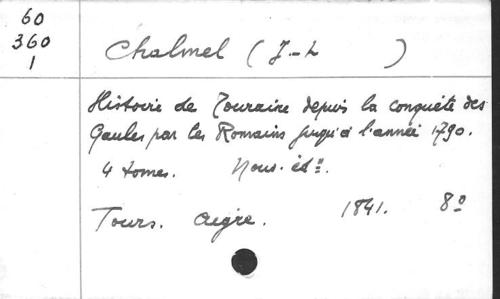 60
360
1
Chalmel (J-L )
Histoire de Touraine depuis la conquête des
Gaules par les Romains jusqu'à l'année 1790.
4 tomes. Nouv. édon.
Tours. Aigre. 1841. 8o